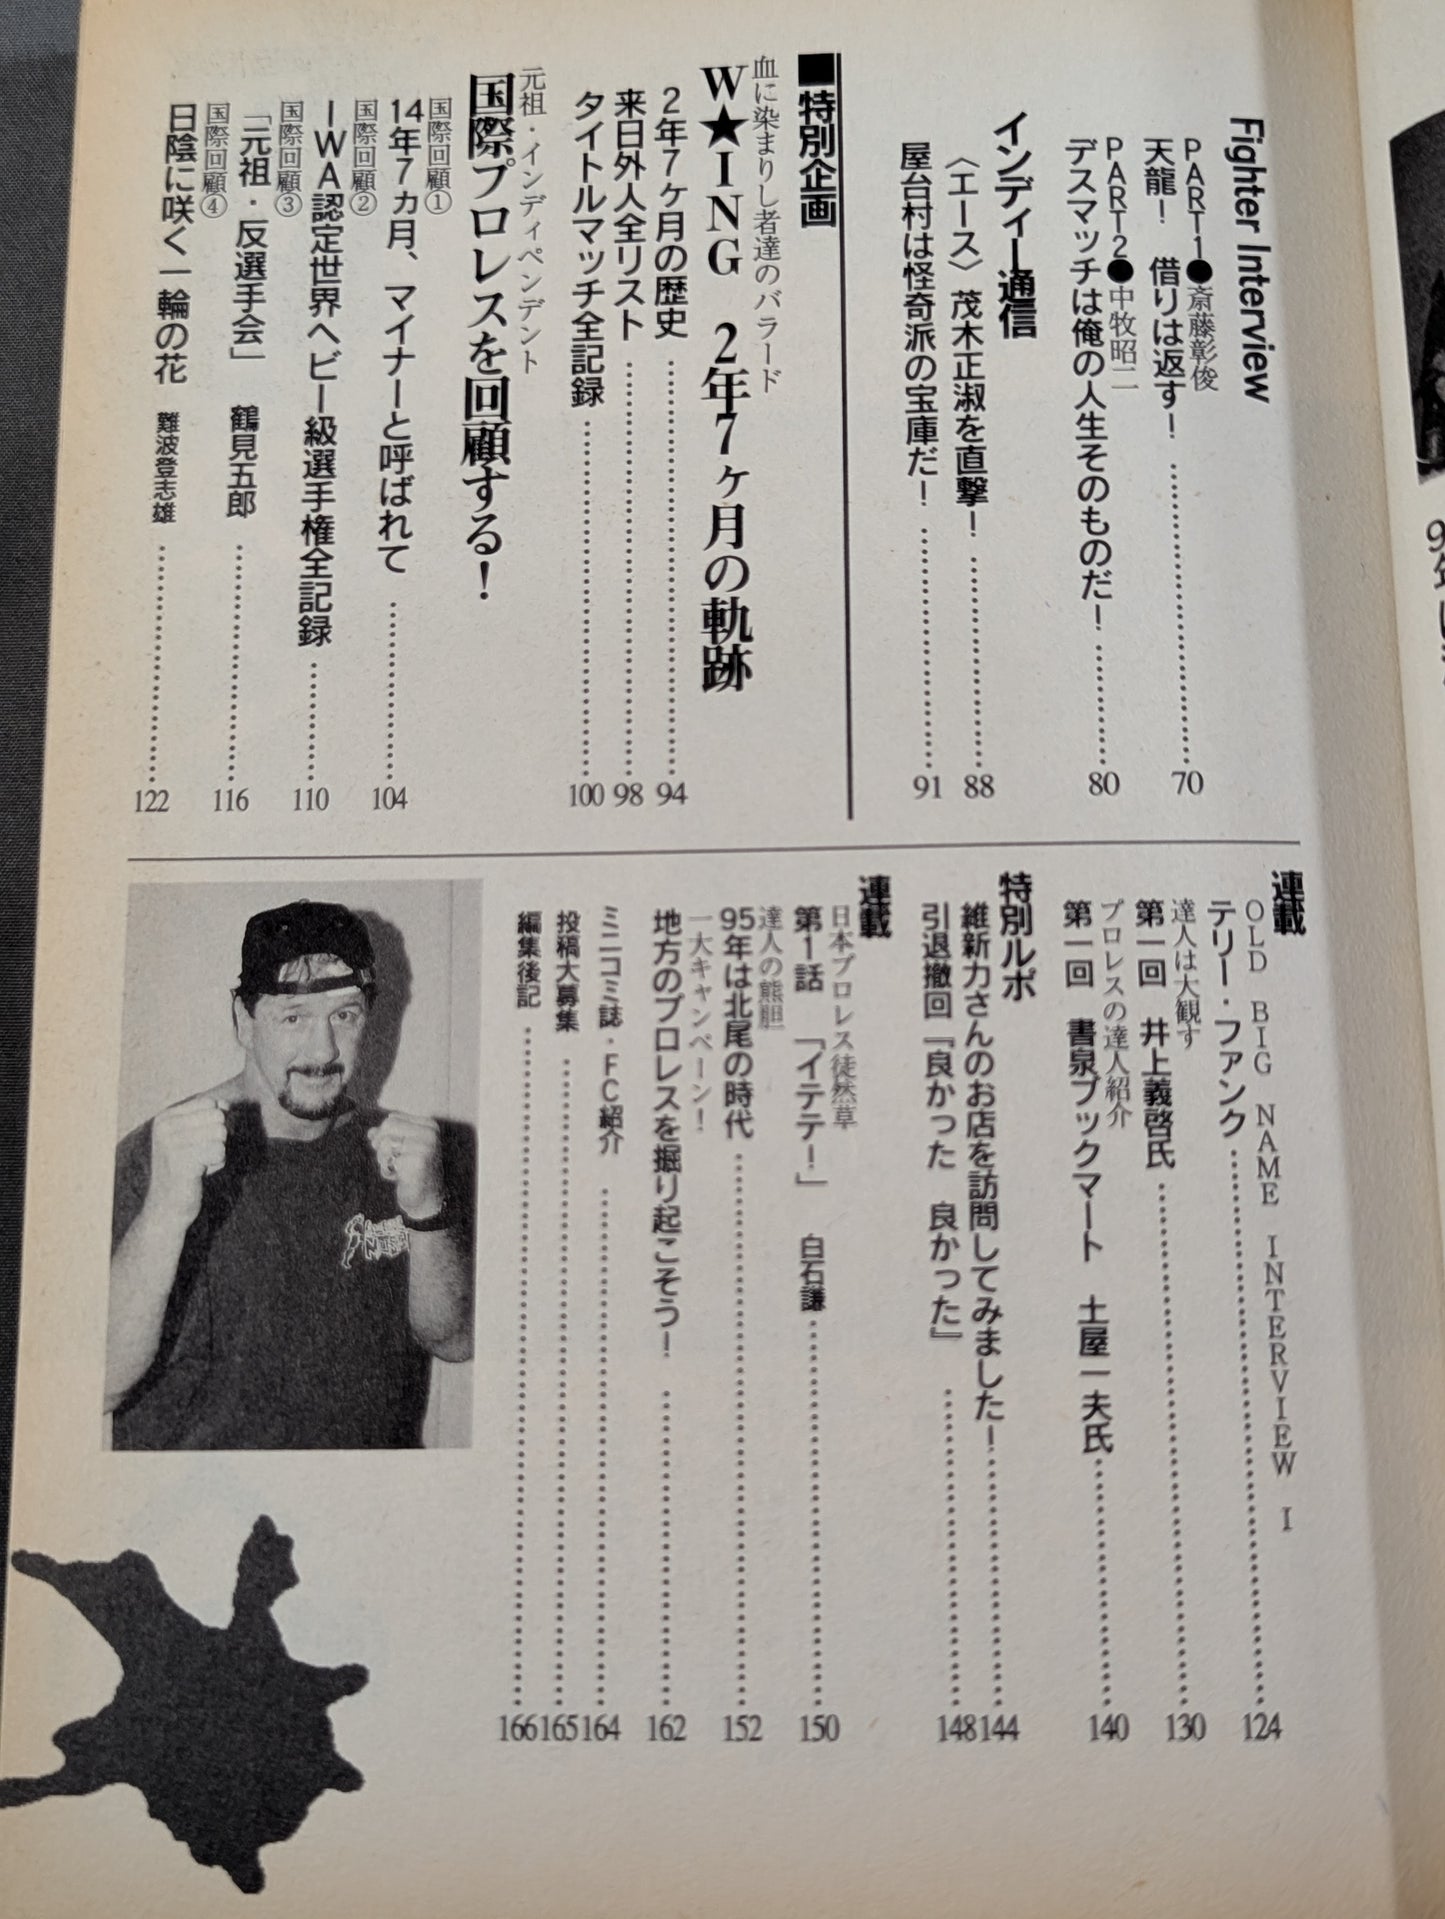 Fighter Interview
PART1●斎藤彰俊
天龍！　借りは返す！ 70
PART2●中牧昭二
デスマッチは俺の人生そのものだ！ 80
インディー通信
〈エース〉茂木正淑を直撃！ 88
屋台村は怪奇派の宝庫だ！ 91
■特別企画
血に染まりし者達のバラード
W★ING　2年7ヶ月の軌跡
2年7ヶ月の歴史 94
来日外人全リスト 98
タイトルマッチ全記録 100
元祖・インディペンデント
国際プロレスを回顧する！
国際回顧①
14年7ヵ月、マイナーと呼ばれて 104
国際回顧②
IWA認定世界ヘビー級選手権全記録 110
国際回顧③
「元祖・反選手会」　鶴見五郎 116
国際回顧④
日陰に咲く一輪の花　難波登志雄 122
連載
OLD BIG NAME INTERVIEW I
テリー・ファンク 124
達人は大観す
第一回　井上義啓氏 130
プロレスの達人紹介
第一回　書泉ブックマート　土屋一夫氏 140
特別ルポ
維新力さんのお店を訪問してみました！ 144
引退撤回『良かった　良かった』 148
連載
日本プロレス徒然草
第1話　「イテテ！」　白石謙 150
達人の熊胆
95年は北尾の時代 152
一大キャンペーン！
地方のプロレスを掘り起こそう！ 162
ミニコミ誌・FC紹介 164
投稿大募集 165
編集後記 166